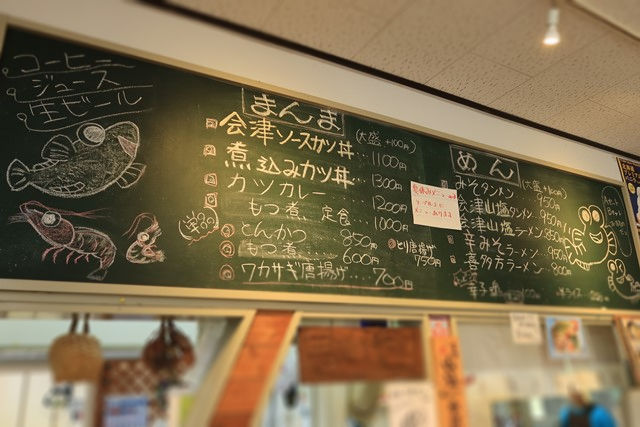 コーヒー
ジュース
生ビール
まんま
会津ソースカツ丼 (大盛+100円) 1100円
煮込みカツ丼 1300円
カツカレー 1200円
もつ煮 定食 1000円
とんかつ 850円
もつ煮 600円
ワカサギ唐揚げ 700円
とり唐揚げ 750円
めん
みそタンメン (大盛+100円) 950円
会津山塩タンメン 950円
会津山塩ラーメン 850円
辛みそラーメン 950円
喜多方ラーメン 800円